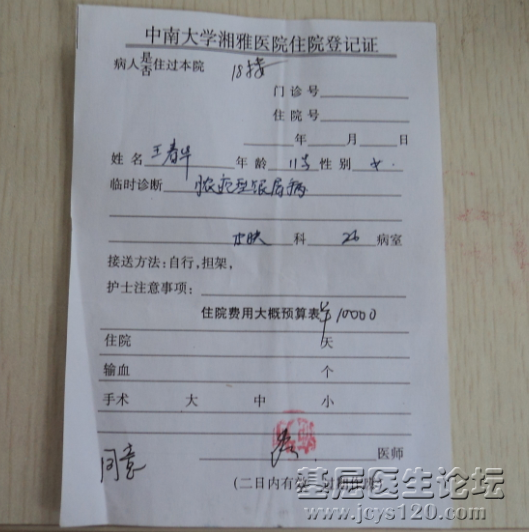 中南大学湘雅医院住院登记证
病人是否住过本院
门诊号
住院号
年 月 日
姓名 王春华 年龄 11岁 性别 女
临时诊断 脓疱型银屑病
皮肤 科 26 病室
接送方法：自行，担架，
护士注意事项：
住院费用大概预算表 ¥10000
住院 天
输血 个
手术 大 中 小
医师
同意
(二日内有效，过期作废)
基层医生论坛
www.jcys120.com